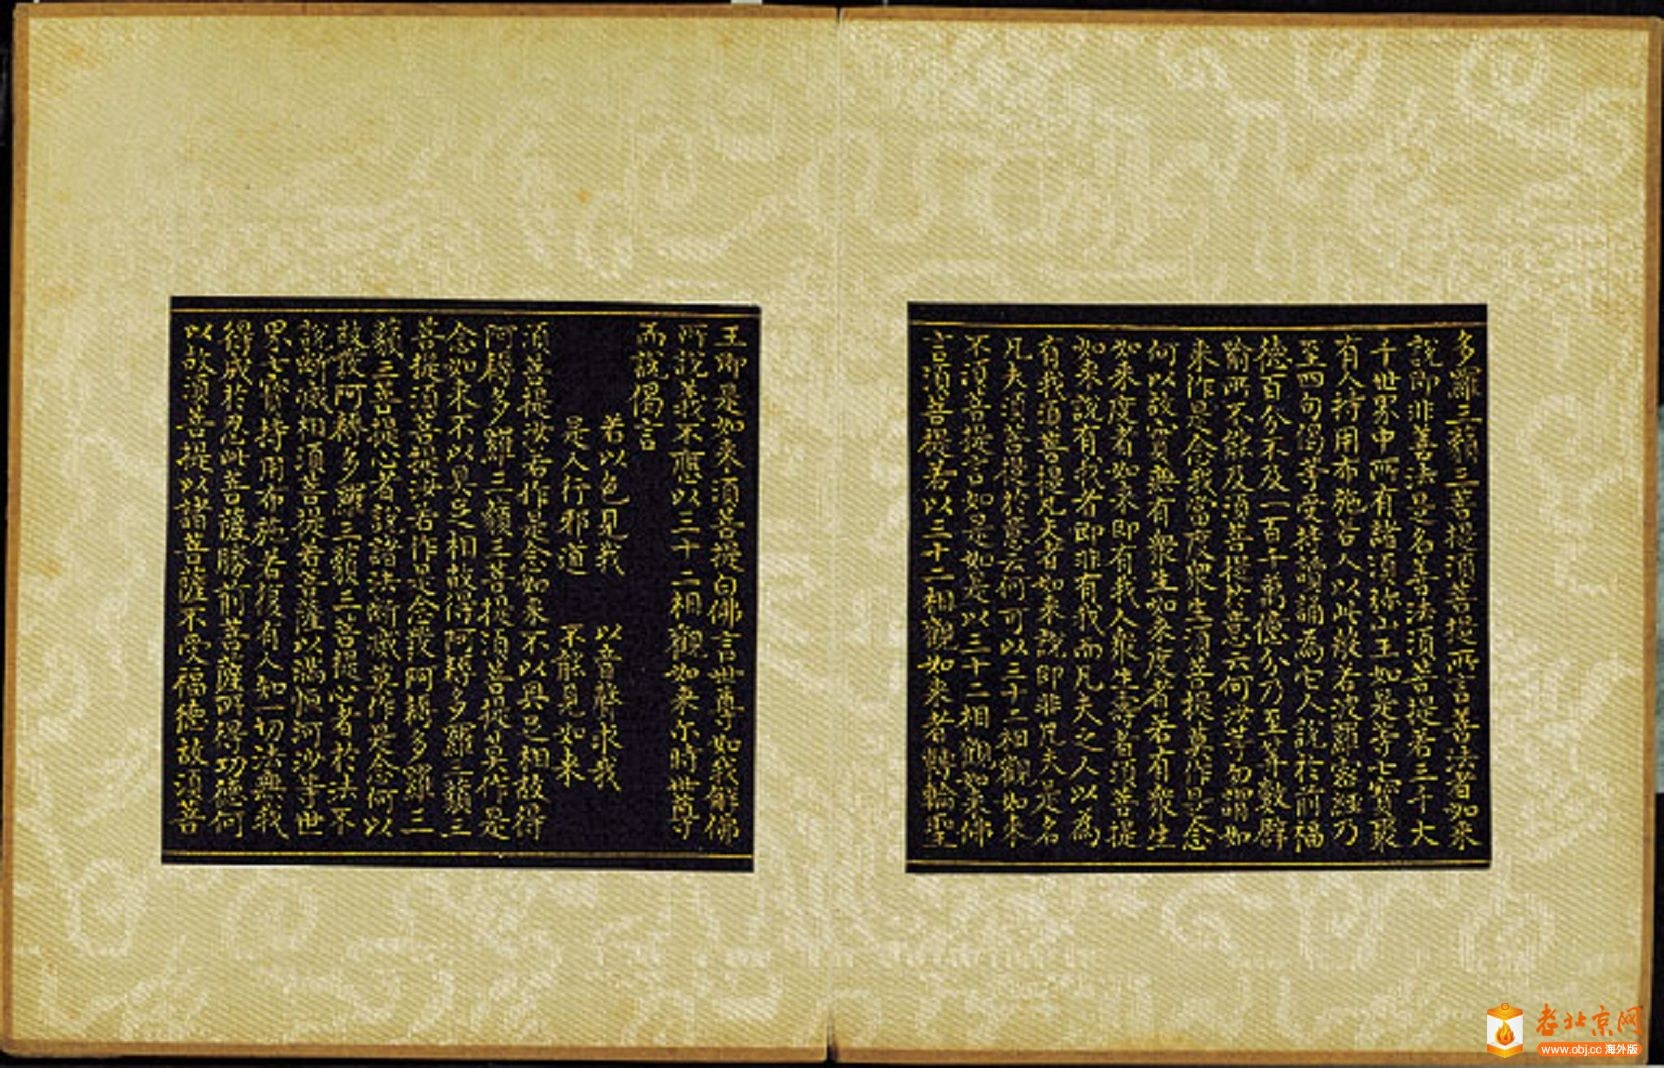 多羅三藐三菩提須菩提所言善法者如來
說即非善法是名善法須菩提若三千大
千世界中所有諸須弥山王如是等七寶聚
有人持用布施若人以此般若波羅蜜經乃
至四句偈等受持讀誦為它人說於前福
德百分不及一百千萬億分乃至筭數譬
喻所不能及須菩提於意云何汝等勿謂如
來作是念我當度眾生須菩提莫作是念
何以故實無有眾生如來度者若有眾生
如來度者如來即有我人眾生壽者須菩提
如來說有我者即非有我而凡夫之人以為
有我須菩提凡夫者如來說即非凡夫是名
凡夫須菩提於意云何可以三十二相觀如來
不須菩提言如是如是以三十二相觀如來佛
言須菩提若以三十二相觀如來者轉輪聖
王即是如來須菩提白佛言世尊如我解佛
所說義不應以三十二相觀如來尒時世尊
而說偈言
若以色見我 以音聲求我
是人行邪道 不能見如來
須菩提汝若作是念如來不以具足相故得
阿耨多羅三藐三菩提須菩提莫作是
念如來不以具足相故得阿耨多羅三藐三
菩提須菩提汝若作是念發阿耨多羅三
藐三菩提心者說諸法斷滅莫作是念何以
故發阿耨多羅三藐三菩提心者於法不
說斷滅相須菩提若菩薩以滿恒河沙等世
界七寶持用布施若復有人知一切法無我
得成於忍此菩薩勝前菩薩所得功德何
以故須菩提以諸菩薩不受福德故須菩
老北京网
www.obj.cc 海外版